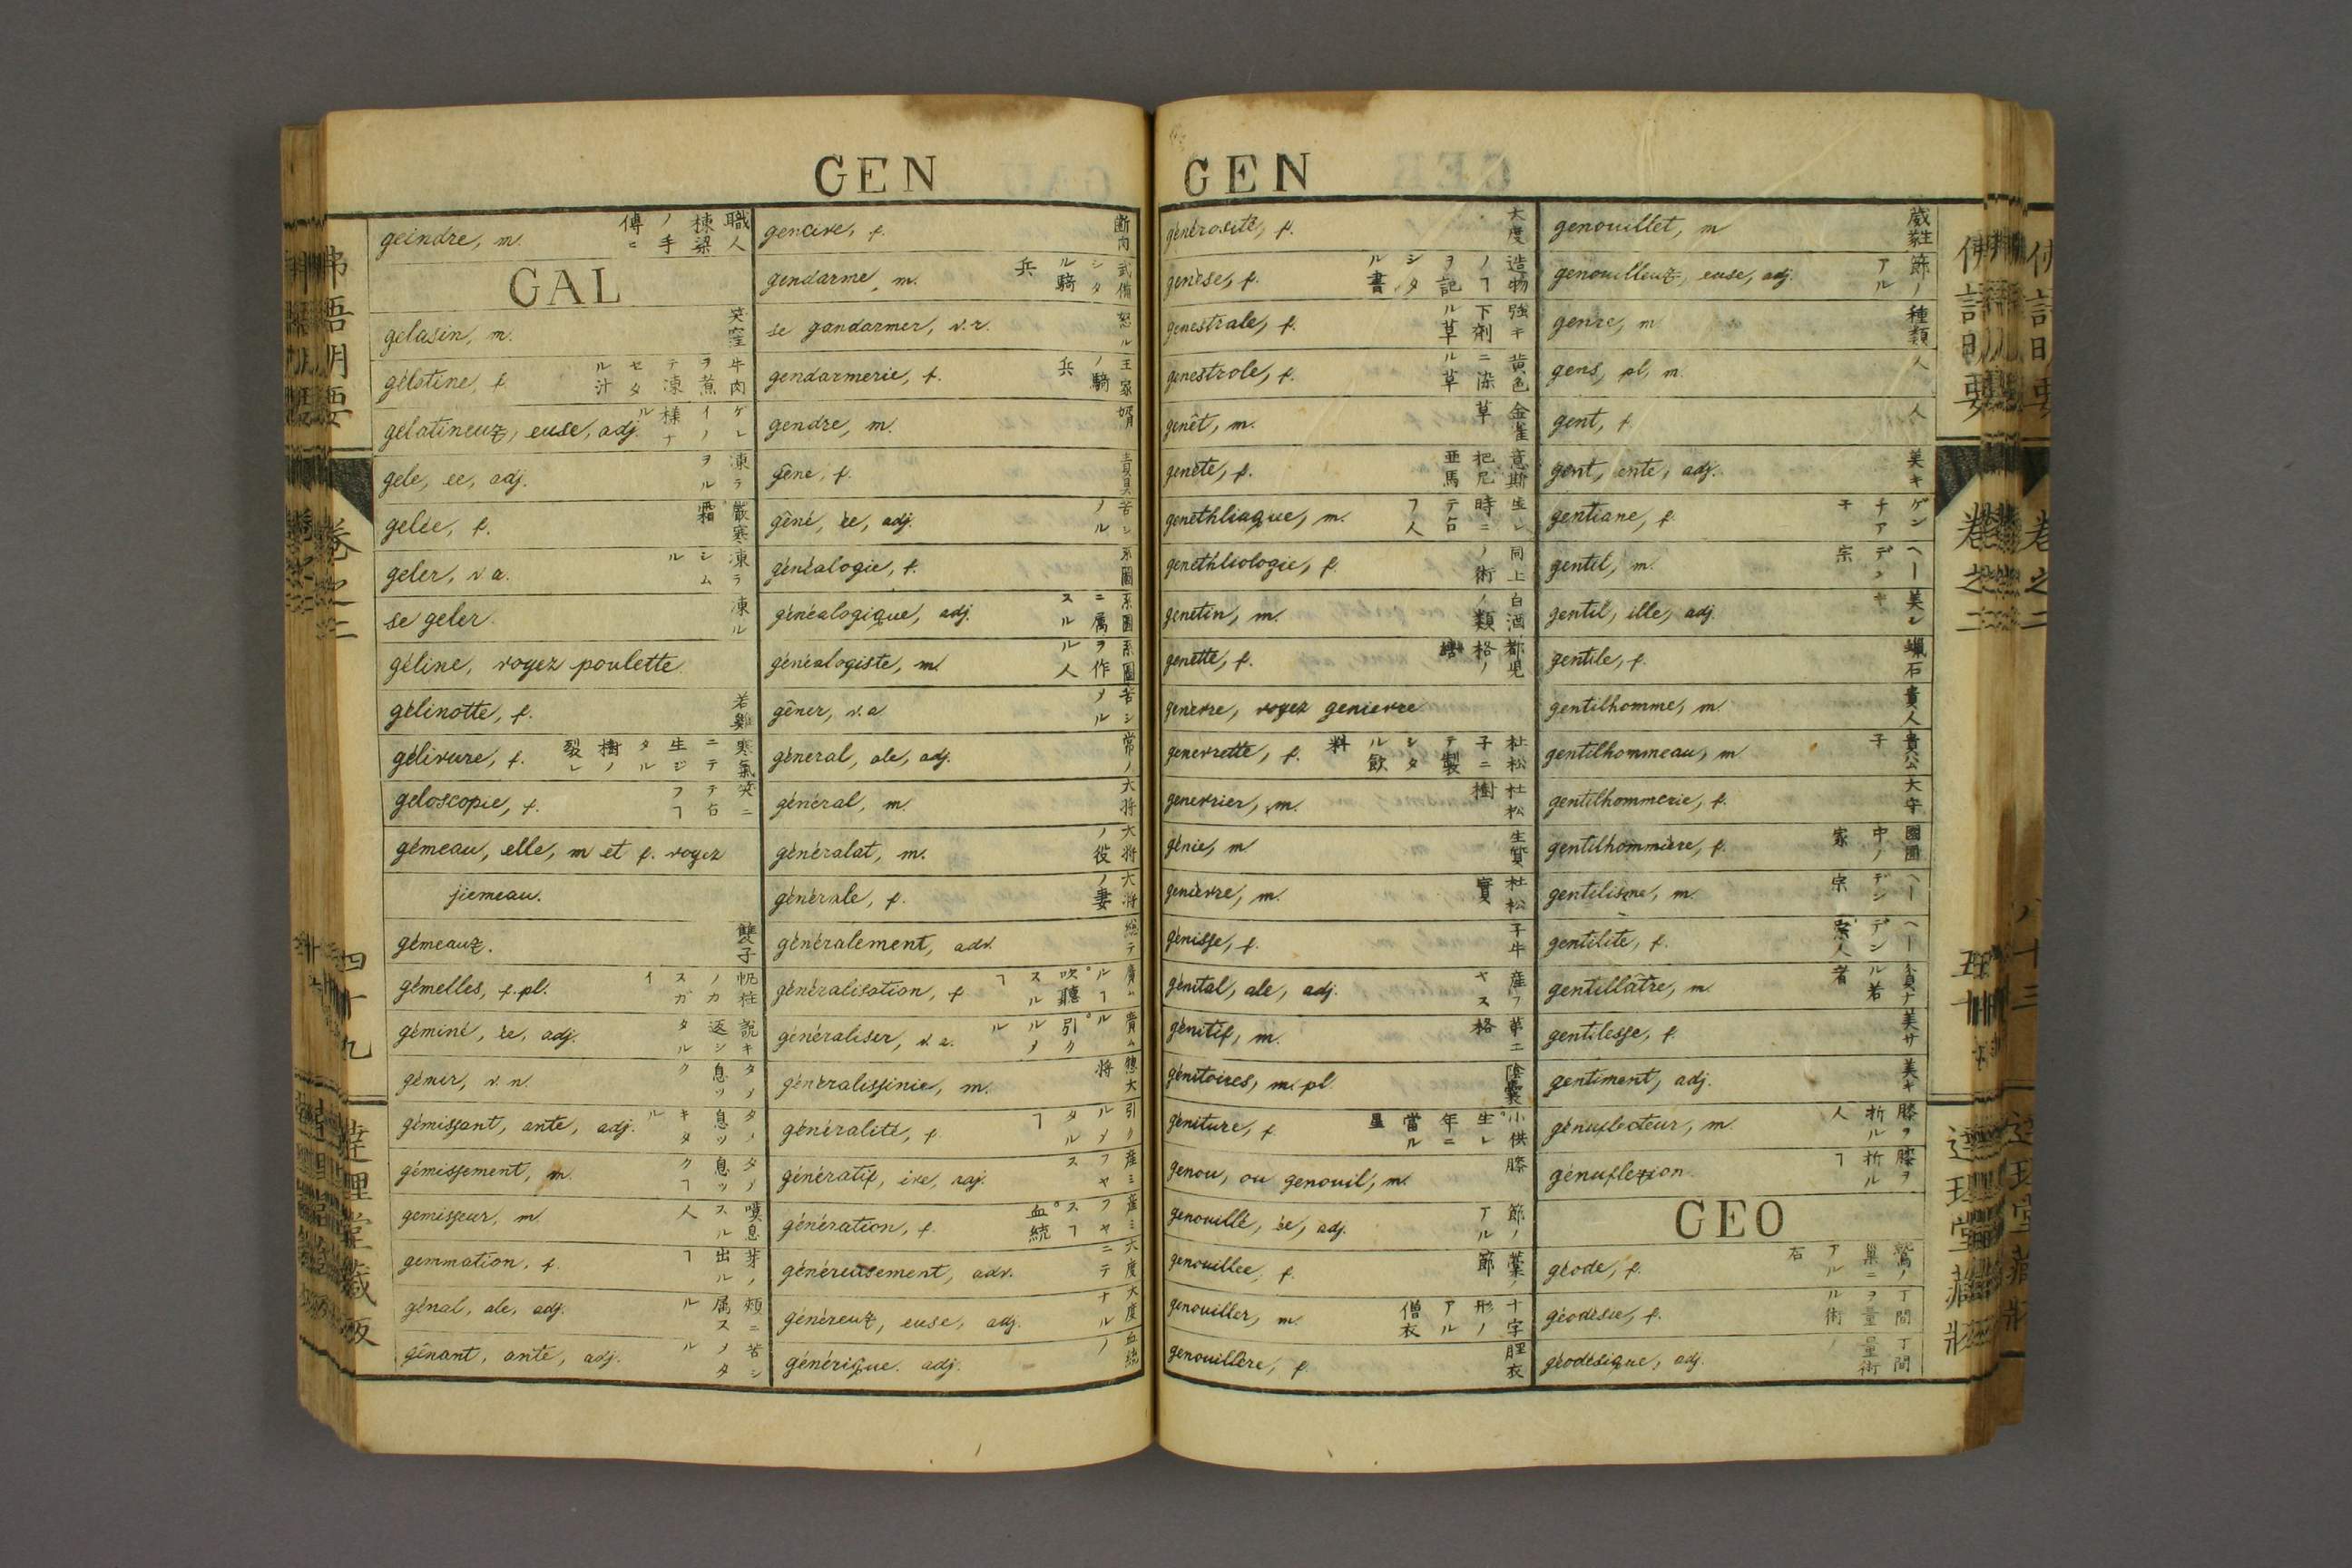 GEN
geindre, m. 職人棟梁ノ手傳
GAL
gelasin, m. 笑窪
gélatine, f. 牛肉ヲ煮テ凍セタル汁
gelatineux, euse, adj. ゲレイノ様ナル
gele, ée, adj. 凍ラヲル
gelée, f. 嚴寒 霜
geler, v.a. 凍ラシムル
se geler. 凍ル
géline, voyez poulette
gélinotte, f. 若雞
gélivure, f. 寒氣ニテ生ジタル樹ノ裂レ
geloscopie, f. 笑ニテ占フヿ
gémeau, elle, m et f. voyez
jiemeau.
gémeaux. 雙子
gémelles, f. pl.
géminé, ée, adj. 説キ返シタル
gémir, v. n. タメ息ツク
gémissant, ante, adj. タメ息ツキタル
gémissement, m. タメ息ツクヿ
gemisseur, m. 嘆息スル人
gemmation, f. 芽ノ出ルヿ
génal, ale, adj. 頬ニ属スル
gênant, ante, adj.
gencive, f. 断肉
gendarme, m. 武備シタル騎兵
se gandarmer, v.r. 怒ル
gendarmerie, f. 王家ノ騎兵
gendre, m. 婿
gêne, f.
gêné, ée, adj.
généalogie, f. 系圖
généalogique, adj. 系圖ニ属スル
généalogiste, m. 系圖ヲ作ル人
gêner, v.a
géneral, ale, adj. 常ノ
général, m. 大将
généralat, m. 大将ノ役
générale, f. 大将ノ妻
généralement, adv. 總テ
généralisation, f
généraliser, v.a.
généralissinie, m. 惣大将
généralité, f. 引クルメタルヿ
génératif, ive, raj. 産ミフヤス
génération, f. 産ミフヤスヿ 血統
généreusement, adv. 大度ニテ
généreux, euse, adj. 大度ナル
générique. adj. 血統ノ
GEN
générosité, f. 大度
genèse, f. 造物ノヿヲ記シタル書
genestrale, f. 強キ下剤ル草
genestrole, f. 黄色ニ染ル草
genêt, m. 金雀草
genete, f.
genethliaque, m. 生レ時ニテ占フ人
genethliologie, f. 同上ノ術
genetin, m. 白酒ノ類
genette, f.
genevre, voyez genievre
genevrette, f. 杜松子ニテ製シタル飲料
genevrier, m. 杜松樹
génie, m 生質
genièvre, m. 杜松實
génisse, f. 子牛
génital, ale, adj. 産フヤス
génitif, m. 第二格
génitoires, m. pl. 陰囊
géniture, f. 小供 生レ年ニ當ル星
genou, ou genouil, m. 膝
genouillé, ée, adj. 節ノアル
genouillee, f. 藁ノ節
genouiller, m. 十字形ノアル僧衣
genouillère, f. 脛衣
genouillet, m 葳蕤
genouilleux, euse, adj. 節ノアル
genre, m 種類
gens, pl, m. 人
gent, f. 人
gent, ente, adj. 美キ
gentiane, f. ゲンチアチ
gentil, m. ヘーデン宗
gentil, ille, adj. 美シキ
gentile, f. 蠟石
gentilhomme, m. 貴人
gentilhommeau, m 貴公子
gentilhommerie, f.
gentilhommière, f. 國中ノ家
gentilisme, m. ヘーデン宗
gentilite, f. ヘーデン宗人
gentillâtre, m. 貧ナル若者
gentilesse, f. 美サ
gentiment, adj. 美キ
génuflecteur, m. 膝ヲ折ル人
génuflexion. 膝ヲ折ルヿ
GEO
géode, f. 鷲ノ巣ニアル石
géodésie, f. 丁間ヲ量ル術
géodésique, adj. 丁間量術ノ
卷之二
四十九
卷之二
達理堂藏